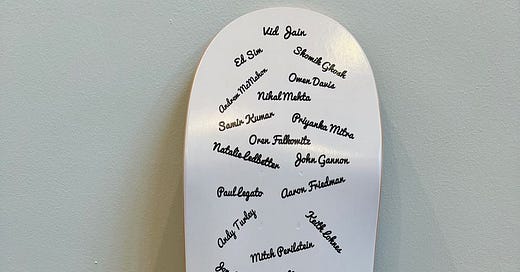 Vid Jain
Ed Sim
Shomik Ghosh
Andrew McMahon
Owen Davis
Nihal Mehta
Samir Kumar
Priyanka Mitra
Oren Falkowitz
Natalie Ledbetter
John Gannon
Paul Legato
Aaron Friedman
Andy Turley
Keith Lohnes
Mitch Perilstein